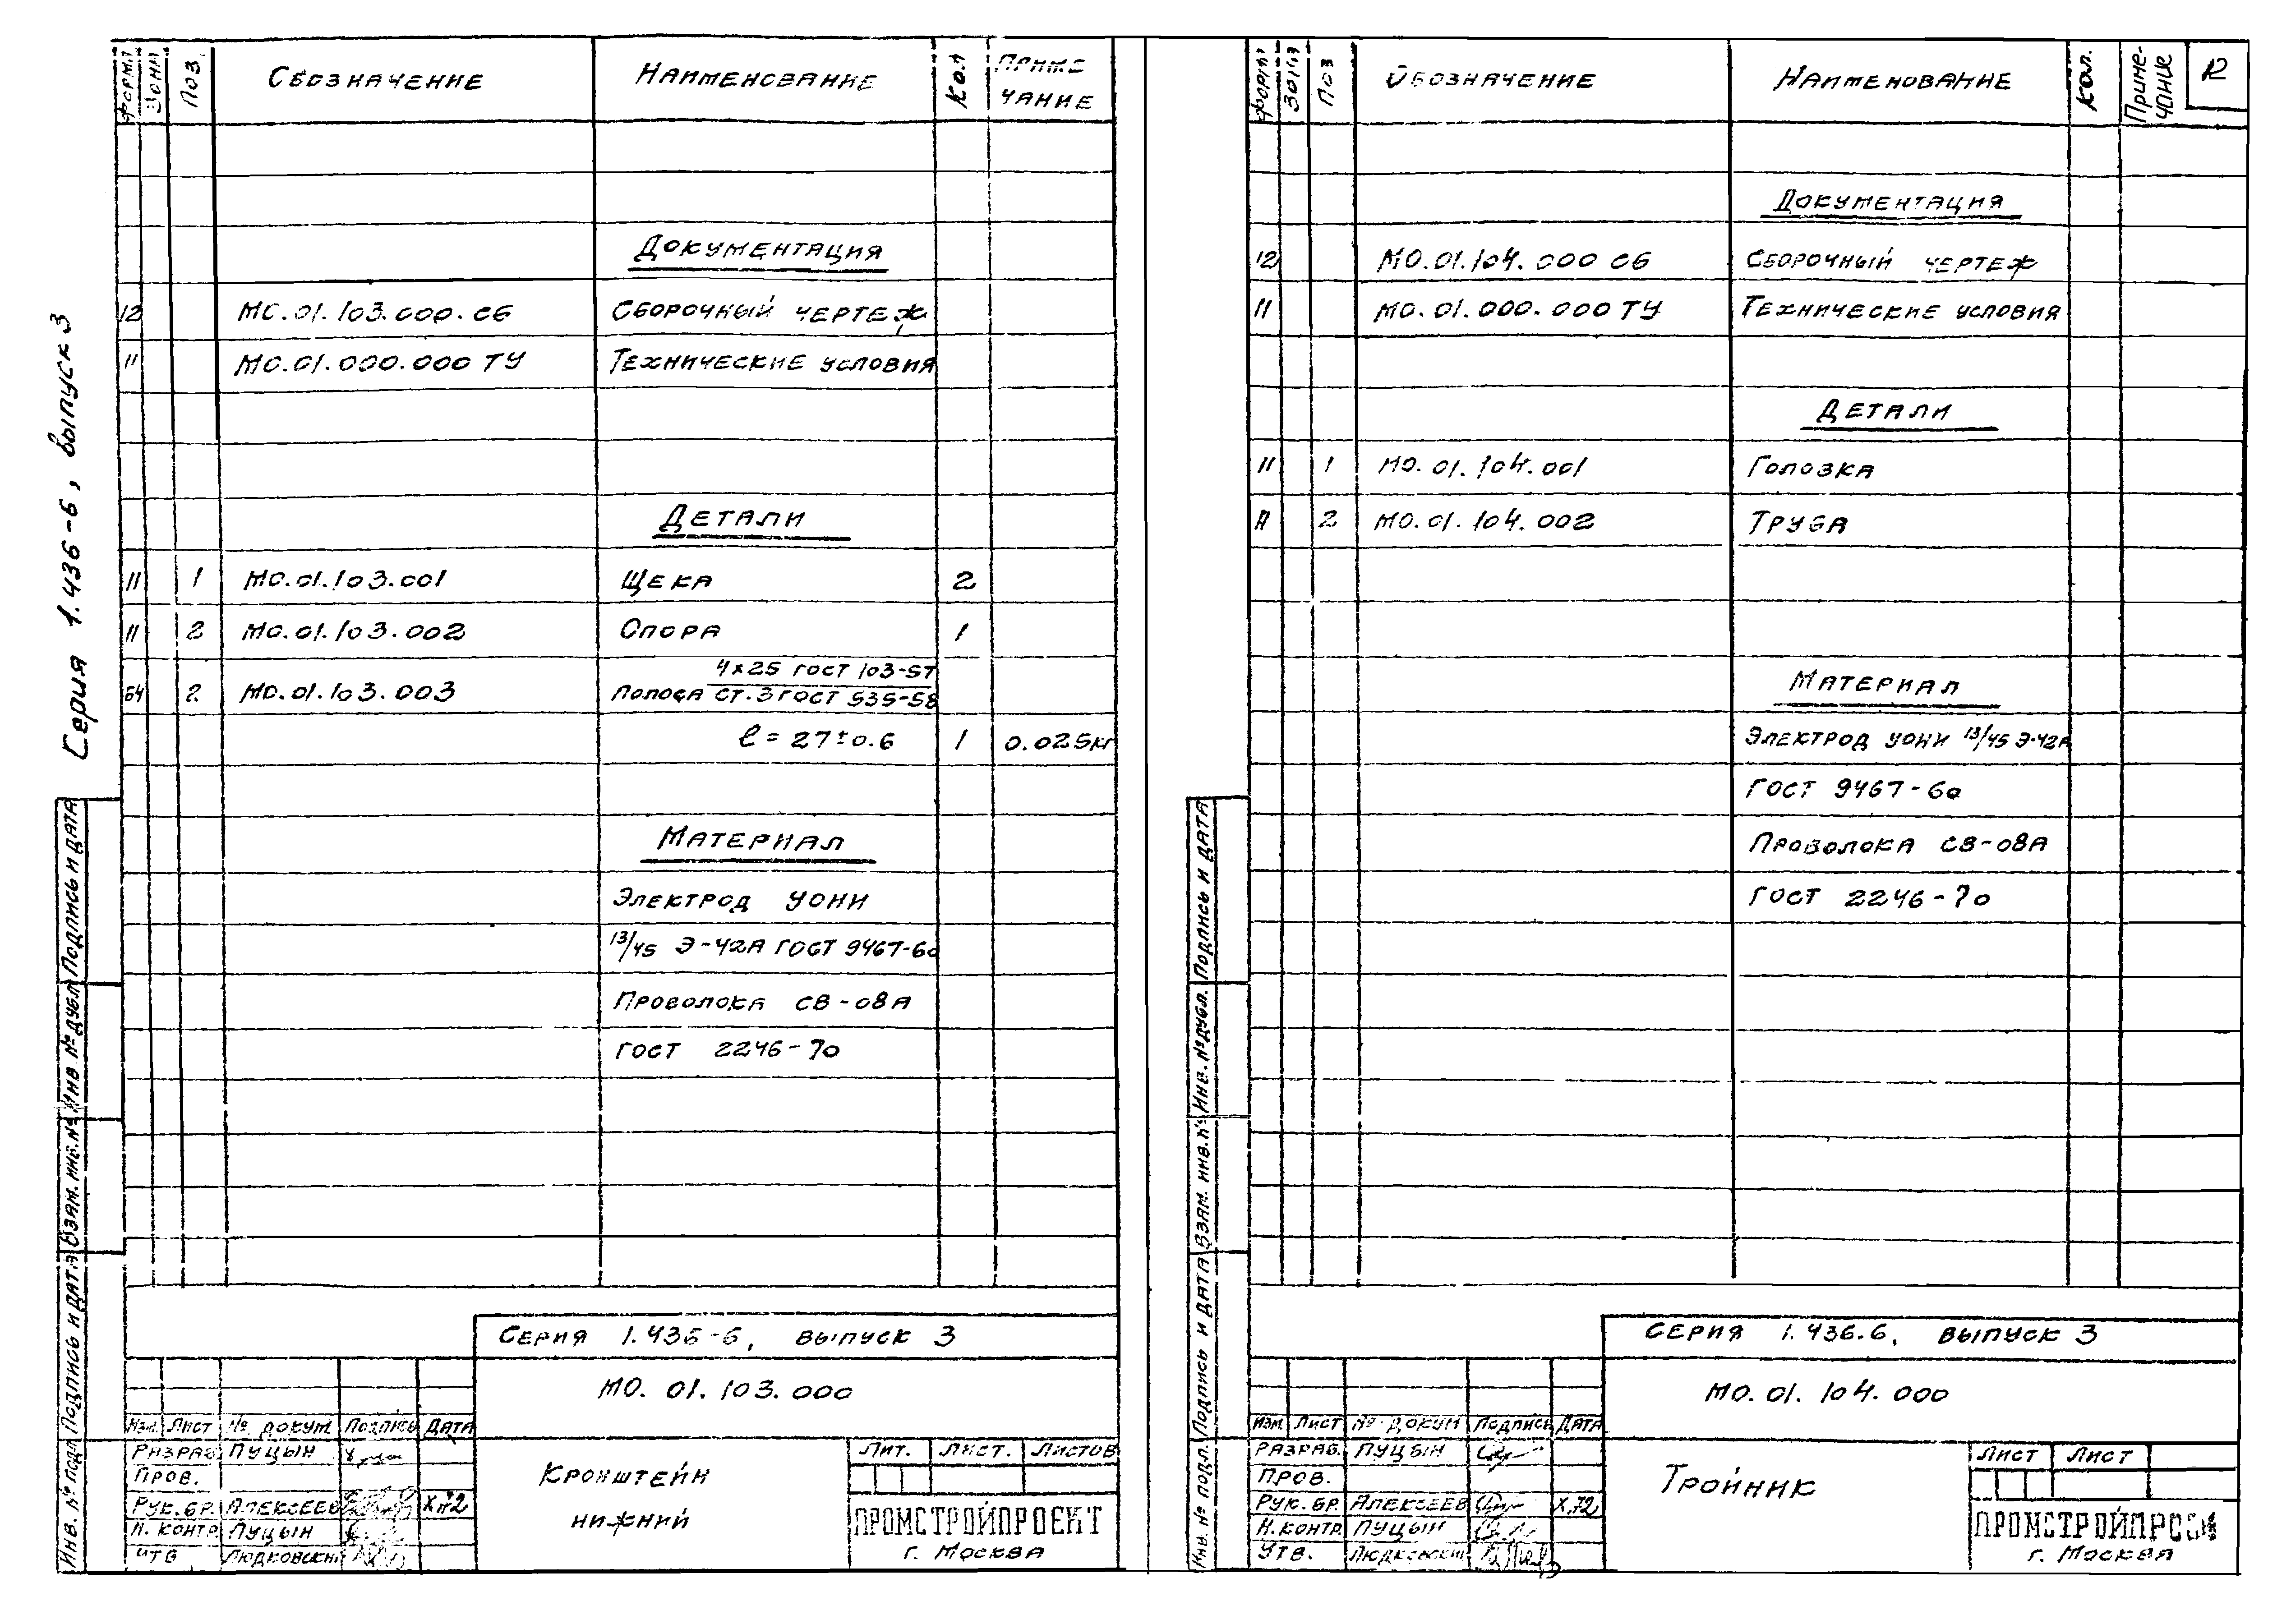 Серия 1.436-6, выпуск 3
Форм. Зона Поз. Обозначение Наименование Кол Приме
чание
Документация
12 МО.01.103.000.СБ Сборочный чертеж
11 МО.01.000.000 ТУ Технические условия
Детали
11 1 МО.01.103.001 Щека 2
11 2 МО.01.103.002 Опора 1
4х25 ГОСТ 103-57
БЧ 2 МО.01.103.003 Полоса Ст.3 ГОСТ 535-58
ℓ = 27±0.6 1 0.025кг
Материал
Электрод УОНИ
13/45 Э-42А ГОСТ 9467-60
Проволока СВ-08А
ГОСТ 2246-70
Серия 1.436-6, выпуск 3
МО. 01. 103. 000
Изм. Лист № докум Подпись Дата
Разраб. Пуцын
Пров.
Рук. бр. Алексеев X.72
Н. контр Пуцын
Утв Людковский
Кронштейн
нижний
Лит. Лист. Листов
ПРОМСТРОЙПРОЕКТ
г. Москва
Инв. № подл Подпись и дата Взам. инв. № Инв № дубл Подпись и дата
Форм. Зона Поз Обозначение Наименование Кол. Приме-
чание
12
Документация
12 МО.01.104.000 СБ Сборочный чертеж
11 МО.01.000.000 ТУ Технические условия
Детали
11 1 МО.01.104.001 Головка
11 2 МО.01.104.002 Труба
Материал
Электрод УОНИ 13/45 Э-42А
ГОСТ 9467-60
Проволока СВ-08А
ГОСТ 2246-70
Серия 1.436.6, выпуск 3
МО. 01. 104. 000
Изм Лист № докум Подпись Дата
Разраб. Пуцын
Пров.
Рук. бр. Алексеев X.72
Н. контр. Пуцын
Утв. Людковский
Тройник
Лист Лист
ПРОМСТРОЙПРОЕКТ
г. Москва
Инв. № подл. Подпись и дата Взам. инв. № Инв. № дубл. Подпись и дата